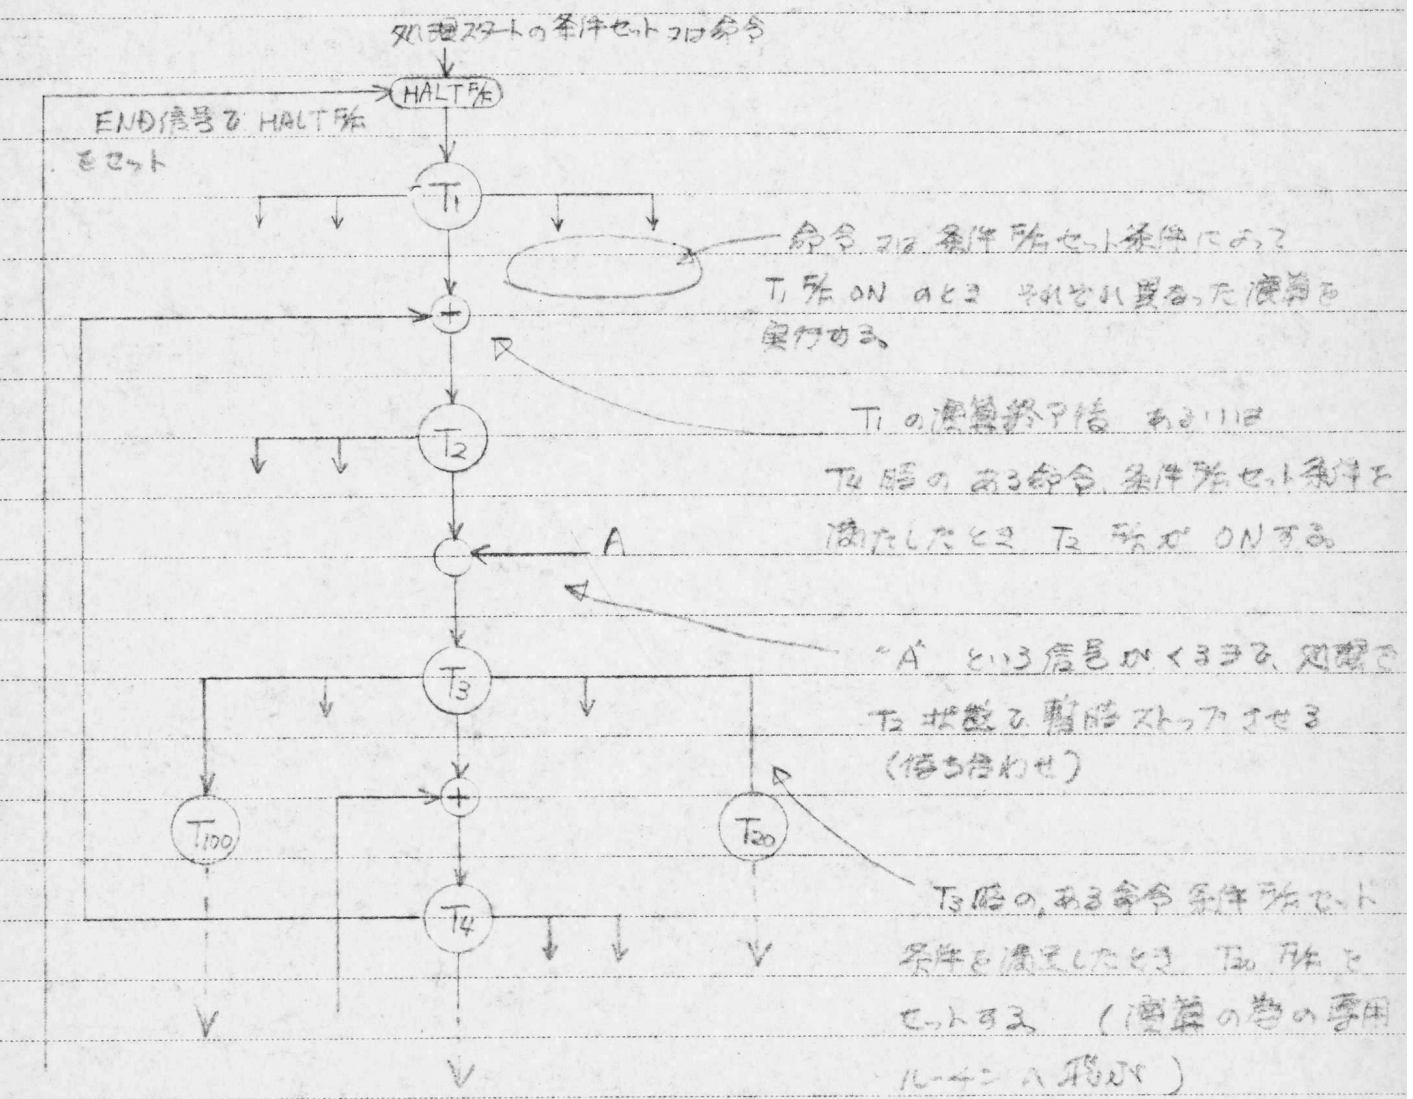 処理スタートの条件セット又は命令
HALT F/F
END信号で HALT F/F
をセット
T1
命令又は条件F/Fセット条件によって
T1 F/F ON のとき それぞれ異なった演算を
実行する。
+
T1 の演算終了後 あるいは
T2
T4 時の ある命令、条件F/Fセット条件を
満たしたとき T2 F/F が ONする。
A
"A" という信号がくるまで、処理を
T3
T2 状態で暫時ストップさせる
(待ち合わせ)
+
T100
T20
T3時の、ある命令 条件F/Fセット
T4
条件を満足したとき T20 F/F を
セットする (演算の為の専用
ルーチンへ飛ばす)